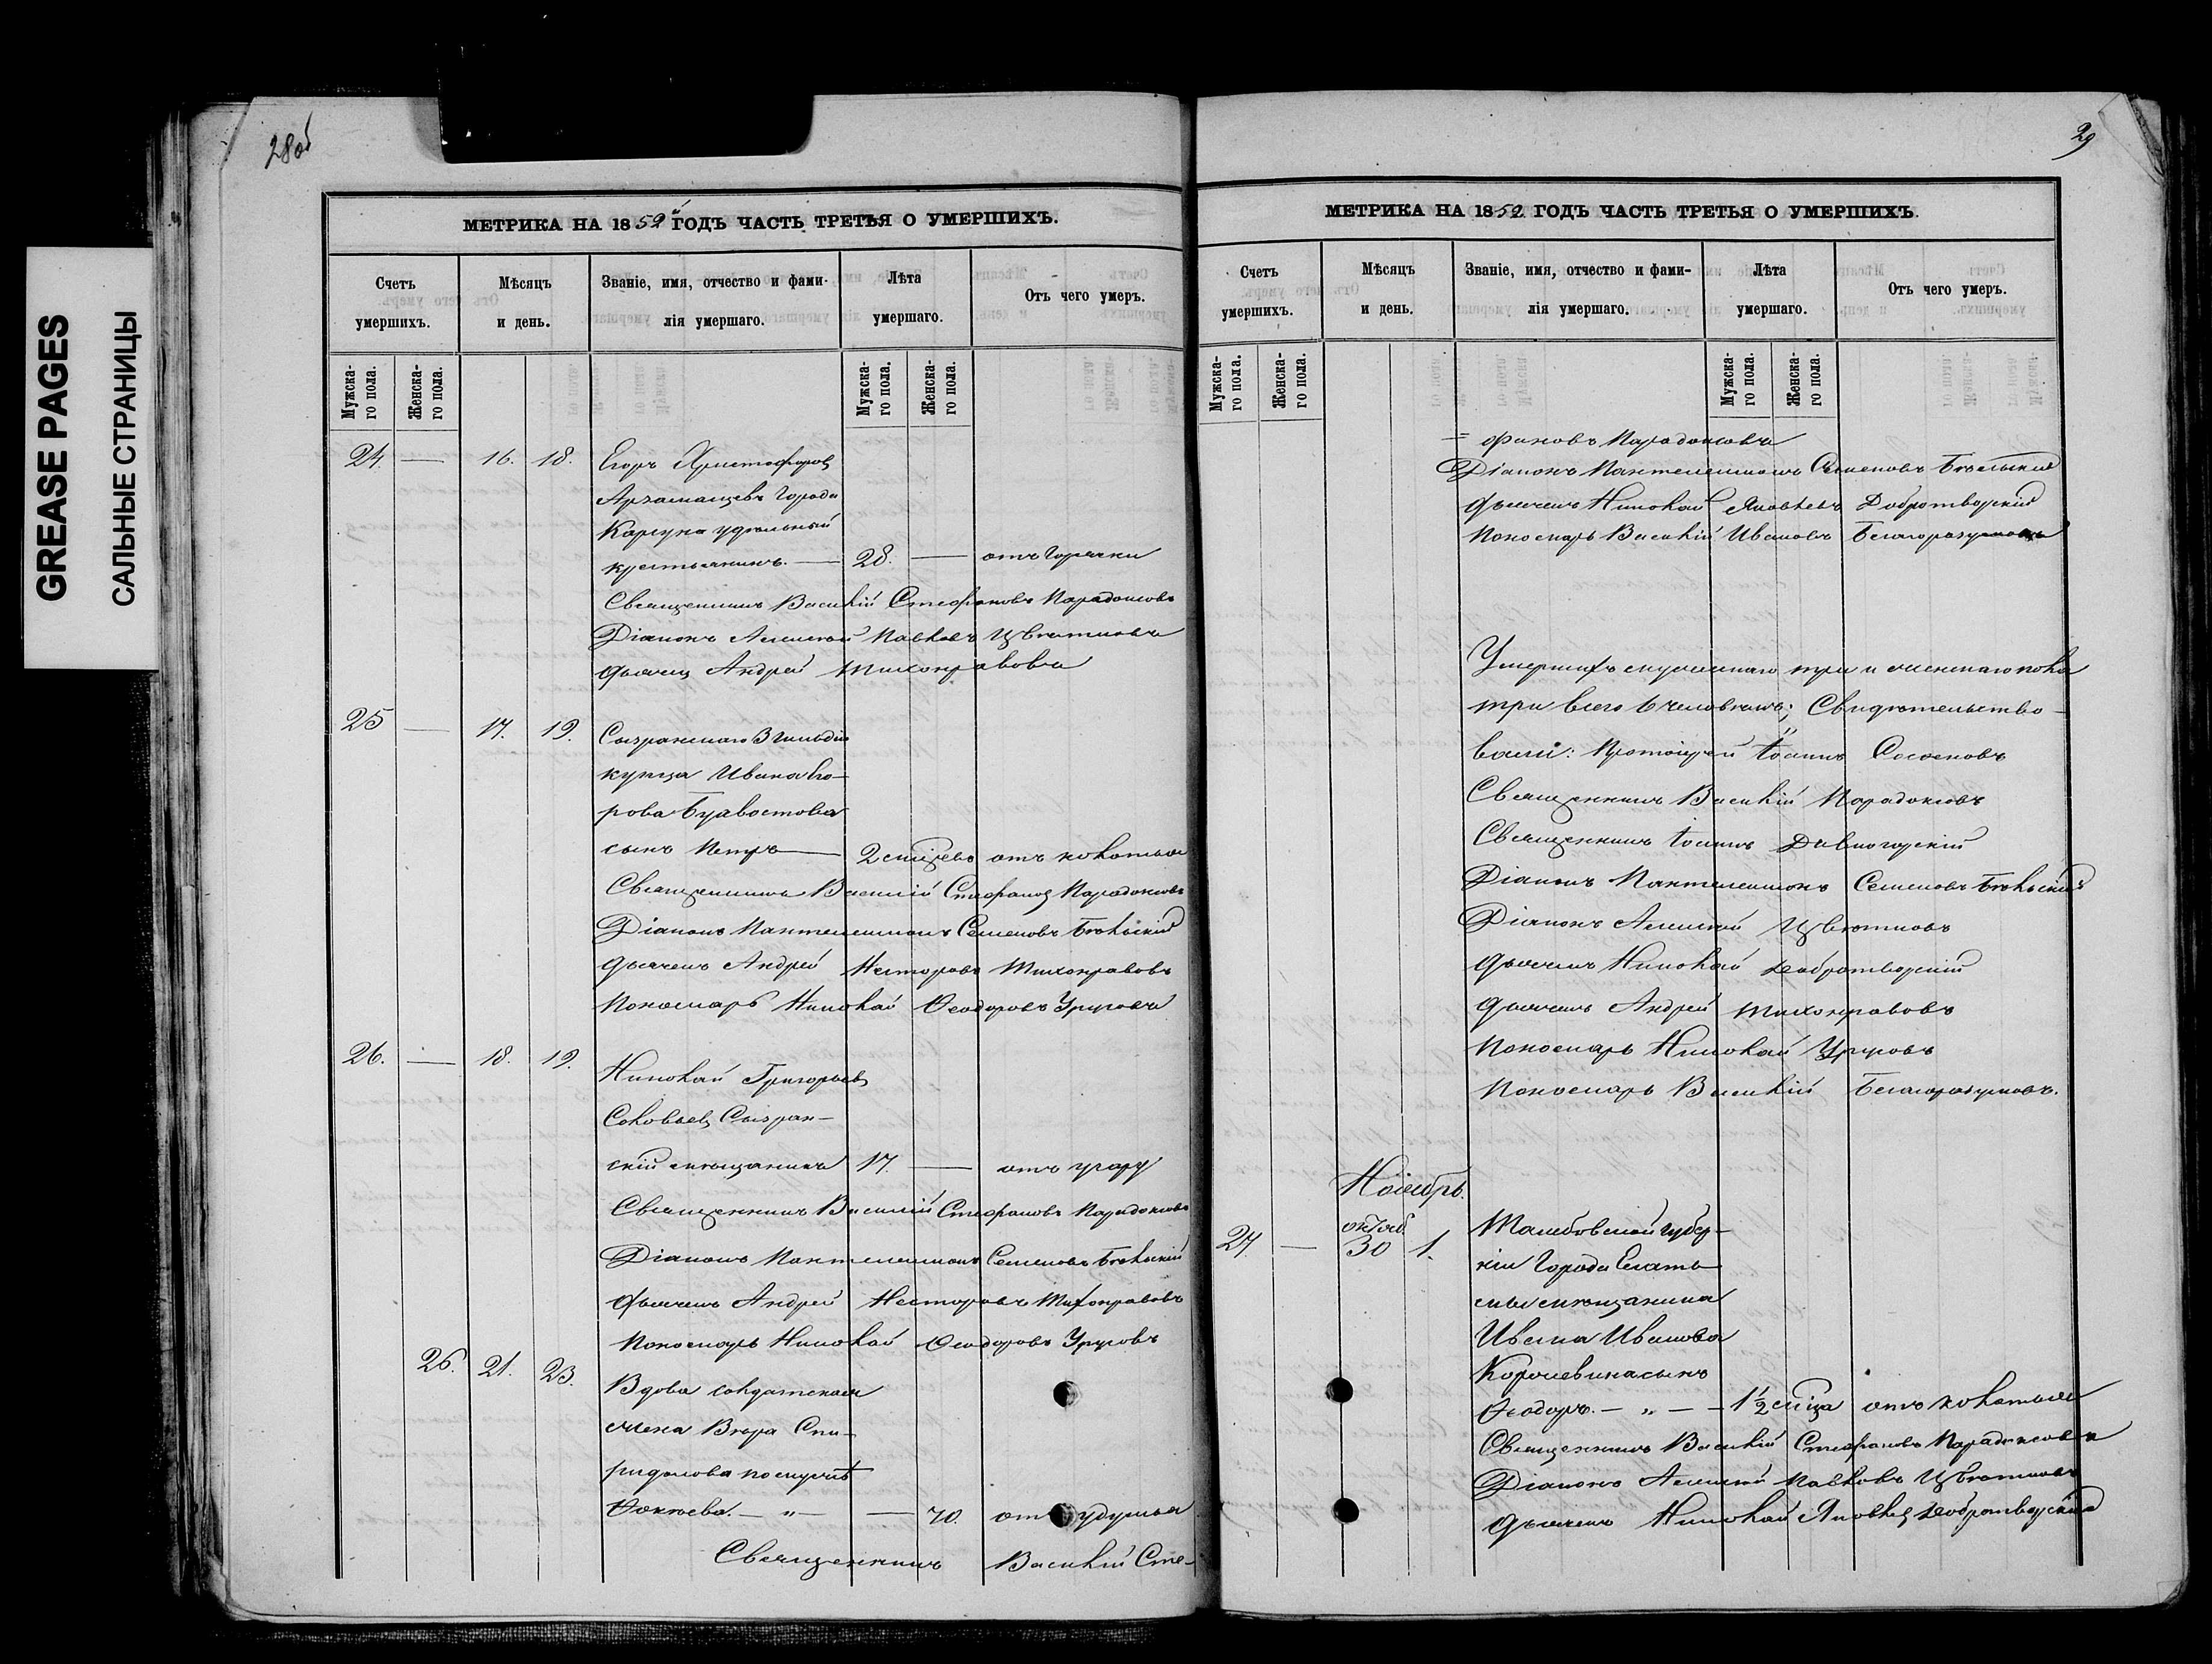 GREASE PAGES
САЛЬНЫЕ СТРАНИЦЫ
28об
МЕТРИКА НА 1859й ГОДЪ ЧАСТЬ ТРЕТЬЯ О УМЕРШИХЪ.
Счетъ умершихъ.
Мѣсяцъ и день.
Званіе, имя, отчество и фами-
лія умершаго.
Лѣта умершаго.
Отъ чего умеръ.
Мужска-
го пола.
Женска-
го пола.
Мужска-
го пола.
Женска-
го пола.
24. — 16. 18. Егоръ Христофоровъ
Арзамацевъ Города
Карсуна удѣльный
крестьянинъ. — 28. — отъ горячки
Священникъ Василій Стефановъ Парадоксовъ
Діаконъ Алексѣй Павловъ Цвѣтковъ
дьячецъ Андрей Тихонравовъ
25 — 17. 19. Сызранскаго 3 гильдіи
купца Ивана Его-
рова Буавостова
сынъ Петръ — 2 мѣсяцевъ отъ колотья
Священникъ Василій Стефановъ Парадоксовъ
Діаконъ Пантелеимонъ Семеновъ Бѣльскій
дьячекъ Андрей Несторовъ Тихонравовъ
Пономарь Николай Ѳеодоровъ Урусовъ
26. — 18. 19. Николай Григорьевъ
Соловьевъ Сызран-
скій мѣщанинъ 17. — отъ угару
Священникъ Василій Стефановъ Парадоксовъ
Діаконъ Пантелеимонъ Семеновъ Бѣльскій
дьячекъ Андрей Несторовъ Тихонравовъ
Пономарь Николай Ѳеодоровъ Урусовъ
26. 21. 23. Вдова солдатская
жена Вѣра Спи-
ридонова по мужѣ
— „ — — 70. отъ удушья
Священникъ Василій Сте-
29
МЕТРИКА НА 1859 ГОДЪ ЧАСТЬ ТРЕТЬЯ О УМЕРШИХЪ.
Счетъ умершихъ.
Мѣсяцъ и день.
Званіе, имя, отчество и фами-
лія умершаго.
Лѣта умершаго.
Отъ чего умеръ.
Мужска-
го пола.
Женска-
го пола.
Мужска-
го пола.
Женска-
го пола.
= фановъ Парадоксовъ
Діаконъ Пантелеимонъ Семеновъ Бѣльскій
дьячекъ Николай Яковлевъ Добротворскій
Пономарь Василій Ивановъ Благоразумовъ
Умершихъ мужескаго три и женскаго пола
три всего 6 человѣкъ; Свидѣтельство-
вали: Протоіерей Іоаннъ Сосновъ
Священникъ Василій Парадоксовъ
Священникъ Іоаннъ Дивногорскій
Діаконъ Пантелеимонъ Семеновъ Бѣльскій
Діаконъ Алексѣй Цвѣтковъ
дьячекъ Николай Добротворскій
дьячекъ Андрей Тихонравовъ
Пономарь Николай Урусовъ
Пономарь Василій Благоразумовъ.
Ноябрь.
27. — октяб. 30 1. Тамбовской губер-
ніи Города Елать-
мы мѣщанина
Ивана Иванова
Королевина сынъ
Ѳеодоръ. — „ — — 1½ мѣсяца отъ колотья
Священникъ Василій Стефановъ Парадоксовъ
Діаконъ Алексѣй Павловъ Цвѣтковъ
дьячекъ Николай Яковлевъ Добротворскій